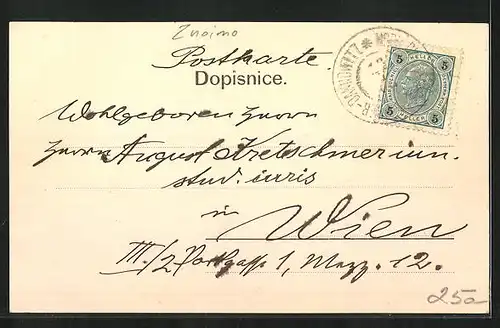 Znoimo
Postkarte
Dopisnice.
Wohlgeboren Herrn
Herrn August Kretschmer iun.
stud. iuris
in
Wien
III/2 Parkgasse 1, Mezz. 12.
5 5
HELLER HELLER
5 5
25a